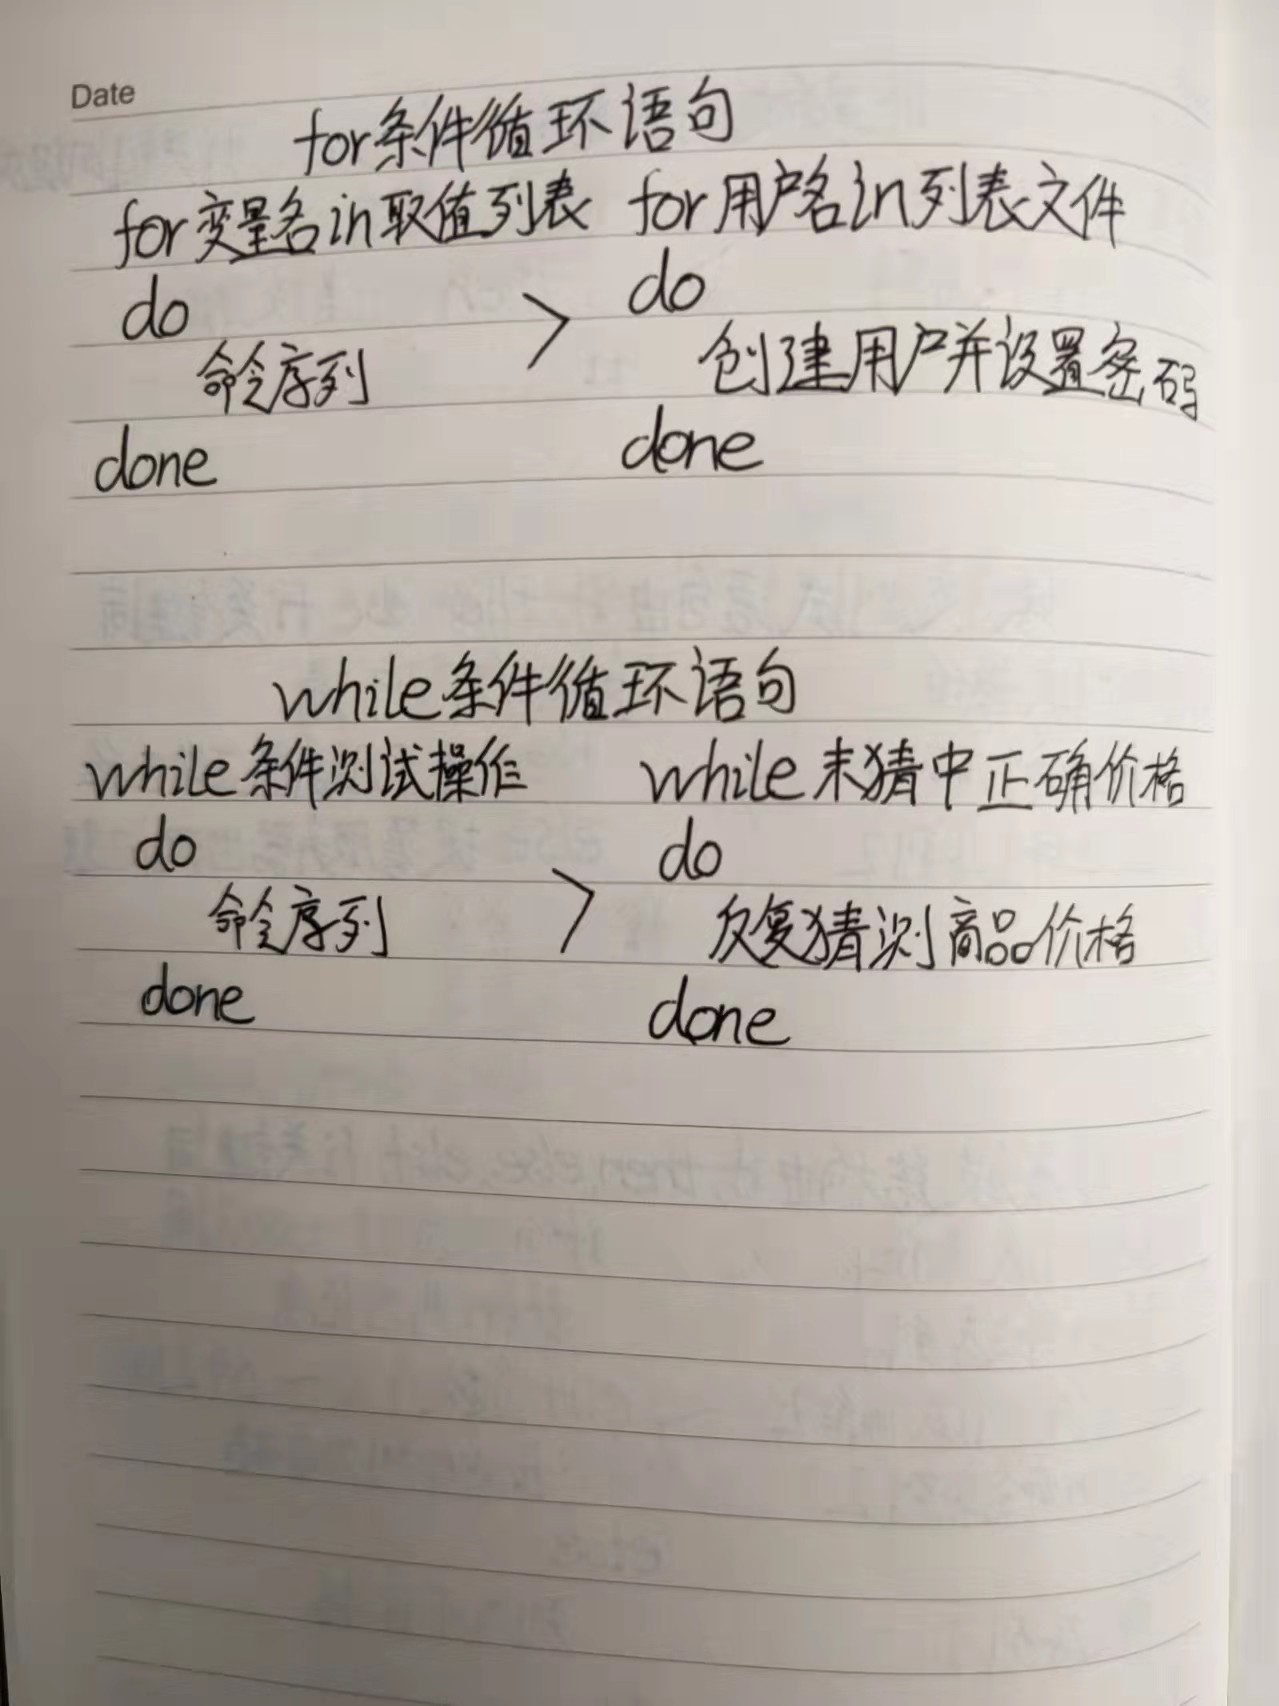 Date
for条件循环语句
for变量名in取值列表 for用户名in列表文件
do > do
命令序列 创建用户并设置密码
done done
while条件循环语句
while条件测试操作 while未猜中正确价格
do > do
命令序列 反复猜测商品价格
done done